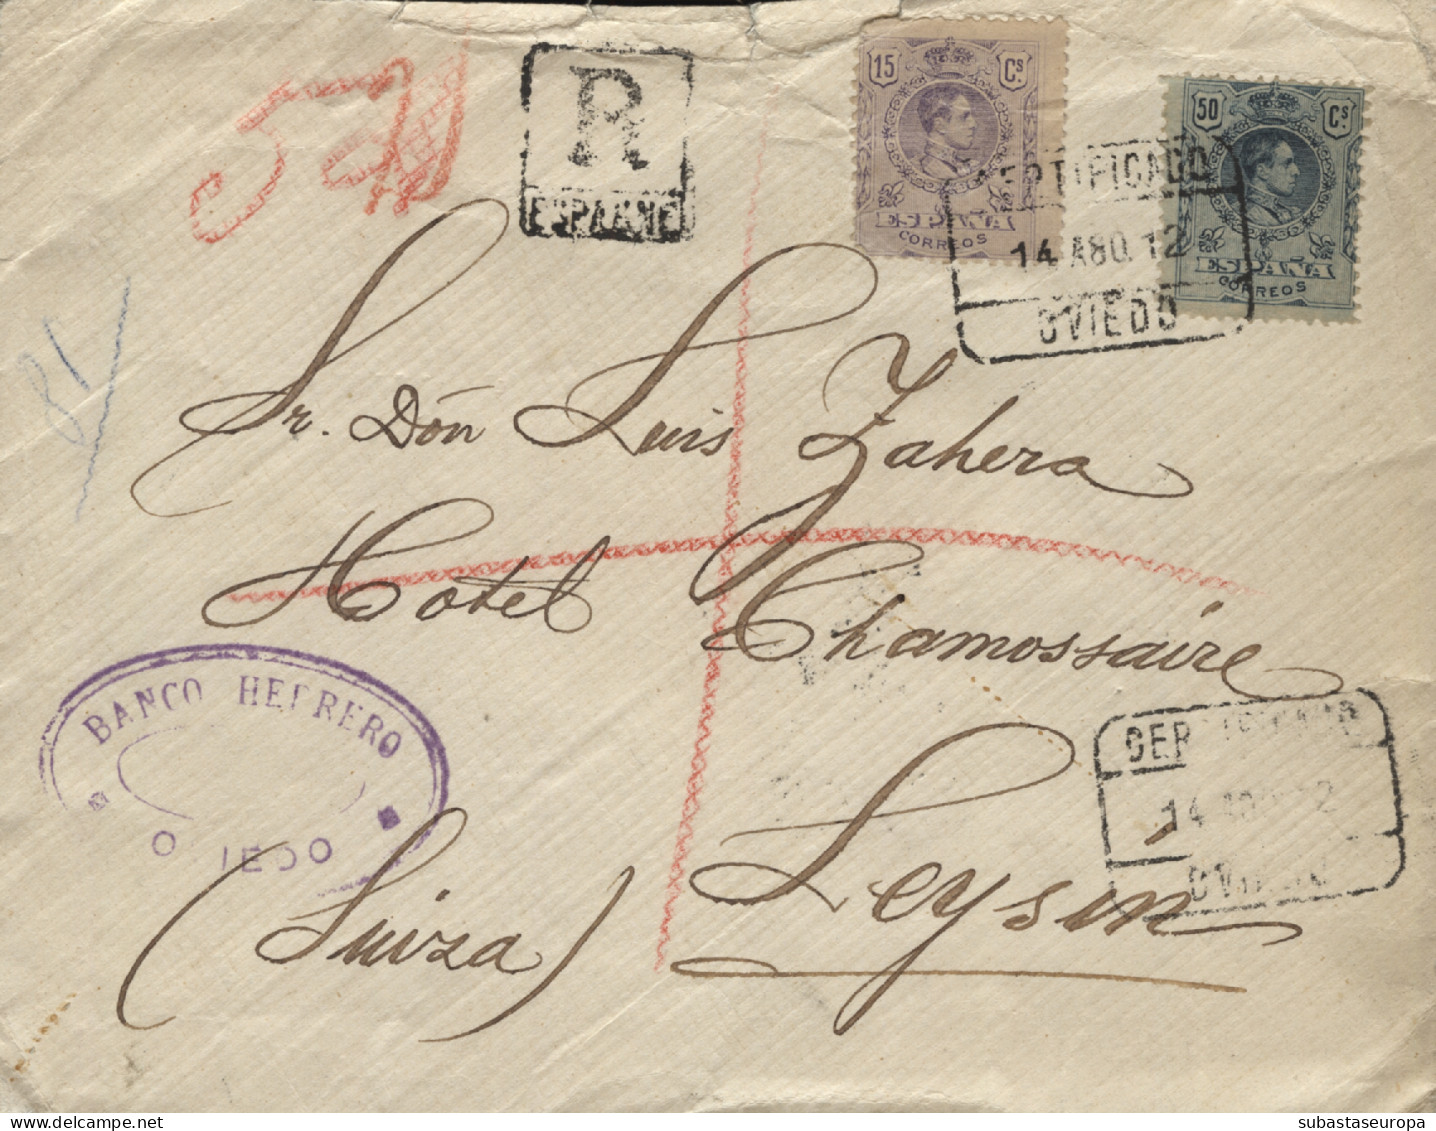 R
ESPAGNE
15 Cs.
ESPAÑA
CORREOS
50 Cs
ESPAÑA
CORREOS
CERTIFICADO
14 AGO. 12
OVIEDO
81
Sr. Dón Luis Zahera
Hotel Chamossaire
Leysin
(Suiza)
BANCO HERRERO
OVIEDO
CERTIFICADO
14 AGO. 12
OVIEDO
subastaseuropa